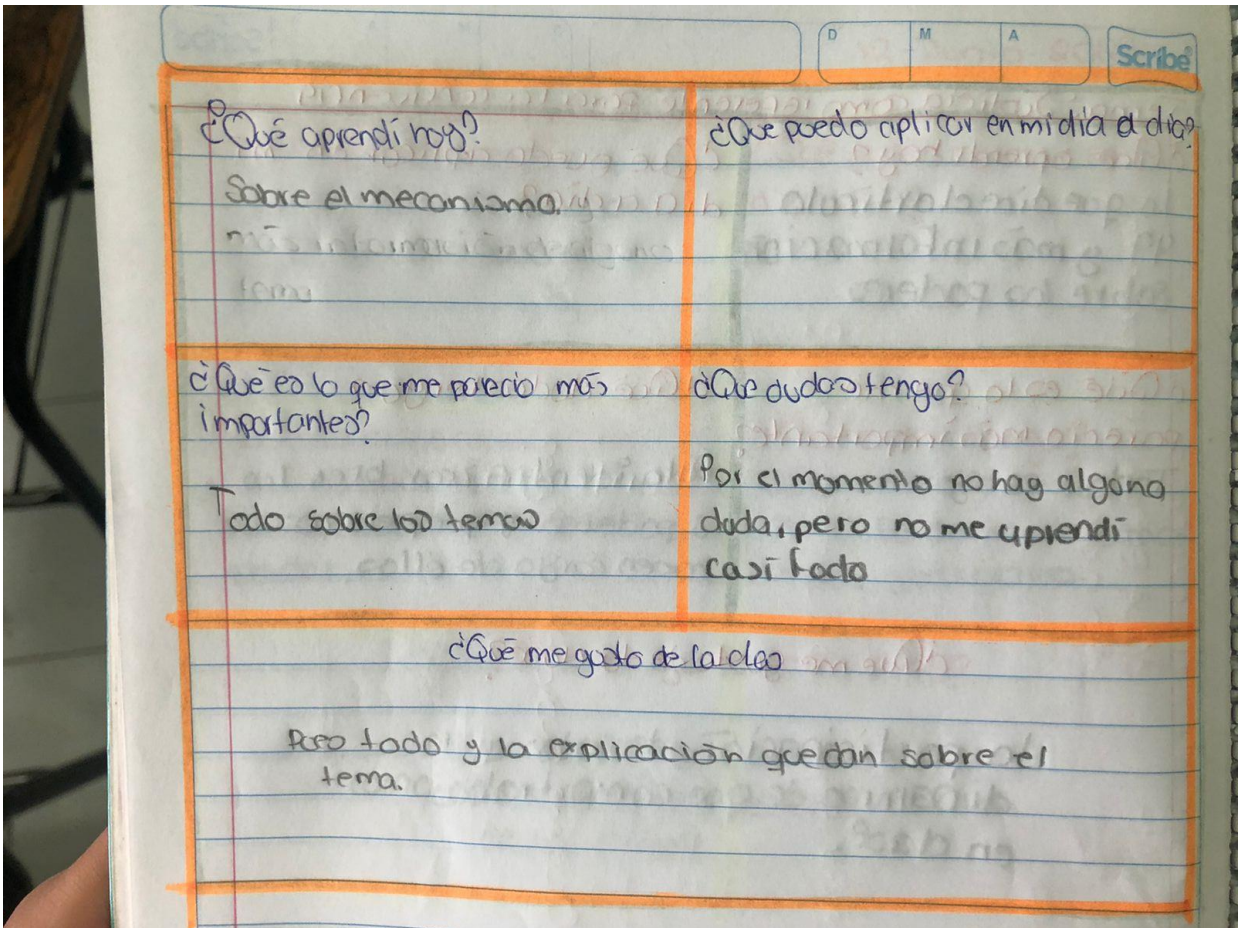 D M A
Scribe
¿Qué aprendí hoy?
Sobre el mecanismo.
¿Que puedo aplicar en mi dia a dia?
¿Qué es lo que me parecio más
importantes?
Todo sobre los temas
¿Que dudas tengo?
Por el momento no hay alguna
duda, pero no me aprendí
casí todo
¿Qué me gusto de la
todo y la explicación que dan sobre el
tema.